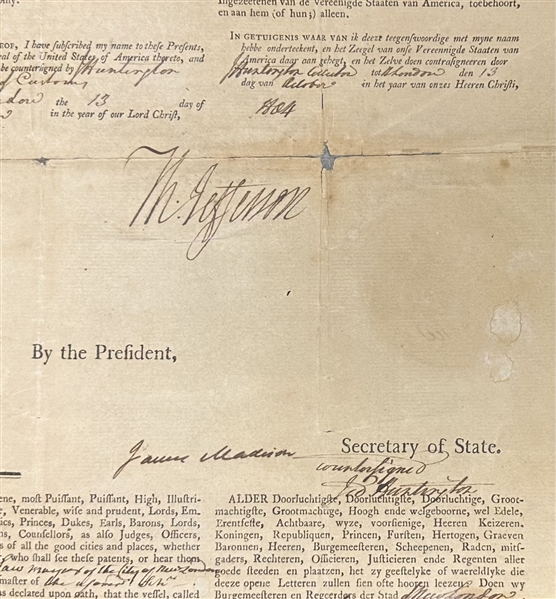 ny.
OF, I have subscribed my name to these Presents,
eal of the United States of America thereto, and
be countersigned by J Huntington
of Customs
ndon the 13 day of
in the year of our Lord Christ,
Ingezeetenen van de Vereenigde Staaten van America, toebehoort,
en aan hem (of hun;) alleen.
IN GETUIGENIS WAAR VAN ik deeze teegenswoordige met myne naam
hebbe onderteekent, en het Zeegel van onse Vereennigde Staaten van
America daar aan gehegt, en het Zelve doen contrasigneeren door
J Huntington Collector tot N London den 13
dag van October in het jaar van onzes Heeren Christi,
1804
Th. Jefferson
By the President,
James Madison Secretary of State.
countersigned
Jed Huntington
ene, most Puissant, Puissant, High, Illustri-
e, Venerable, wise and prudent, Lords, Em-
ics, Princes, Dukes, Earls, Barons, Lords,
ns, Counsellors, as also Judges, Officers,
s of all the good cities and places, whether
who shall see these patents, or hear them
law mayor of the City of New London
master of the
as declared upon oath, that the vessel, called
ALDER Doorluchtigste, Doorluchtigste, Doorluchtige, Groot-
machtigste, Grootmachtige, Hoogh ende welgeboorne, wel Edele,
Erentfeste, Achtbaare, wyze, voorsienige, Heeren Keizeren,
Koningen, Republiquen, Princen, Fursten, Hertogen, Graeven
Baronnen, Heeren, Burgemeesteren, Scheepenen, Raden, mits-
gaders, Rechteren, Officieren, Justicieren ende Regenten aller
goede steeden en plaatzen, het zy geestelyke of waereldlyke die
deeze opene Letteren zullen sien ofte hooren leezen: Doen wy
Burgemeesteren en Regeerders der Stad of New London